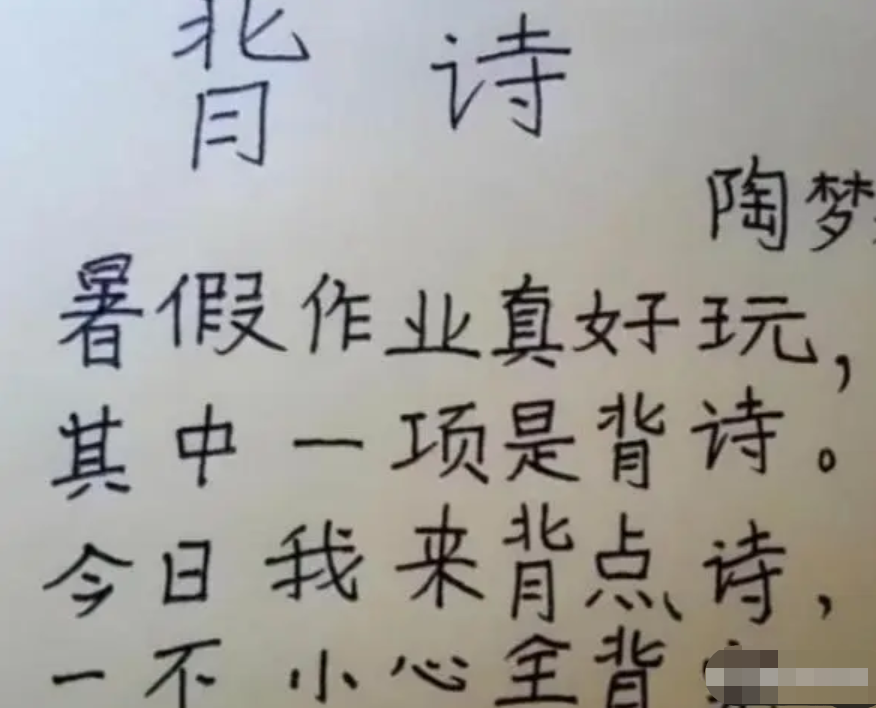 背诗
陶梦
暑假作业真好玩,
其中一项是背诗。
今日我来背点诗,
一不小心全背